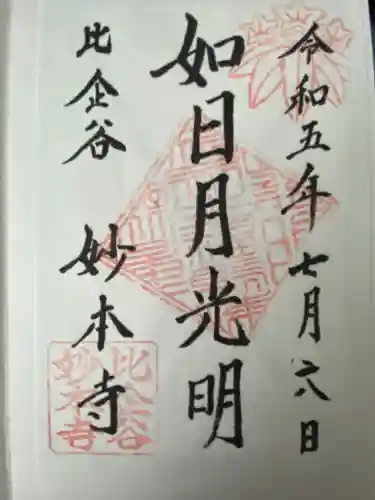 令和五年七月六日
如日月光明
比企谷
妙本寺
比企谷
妙本寺